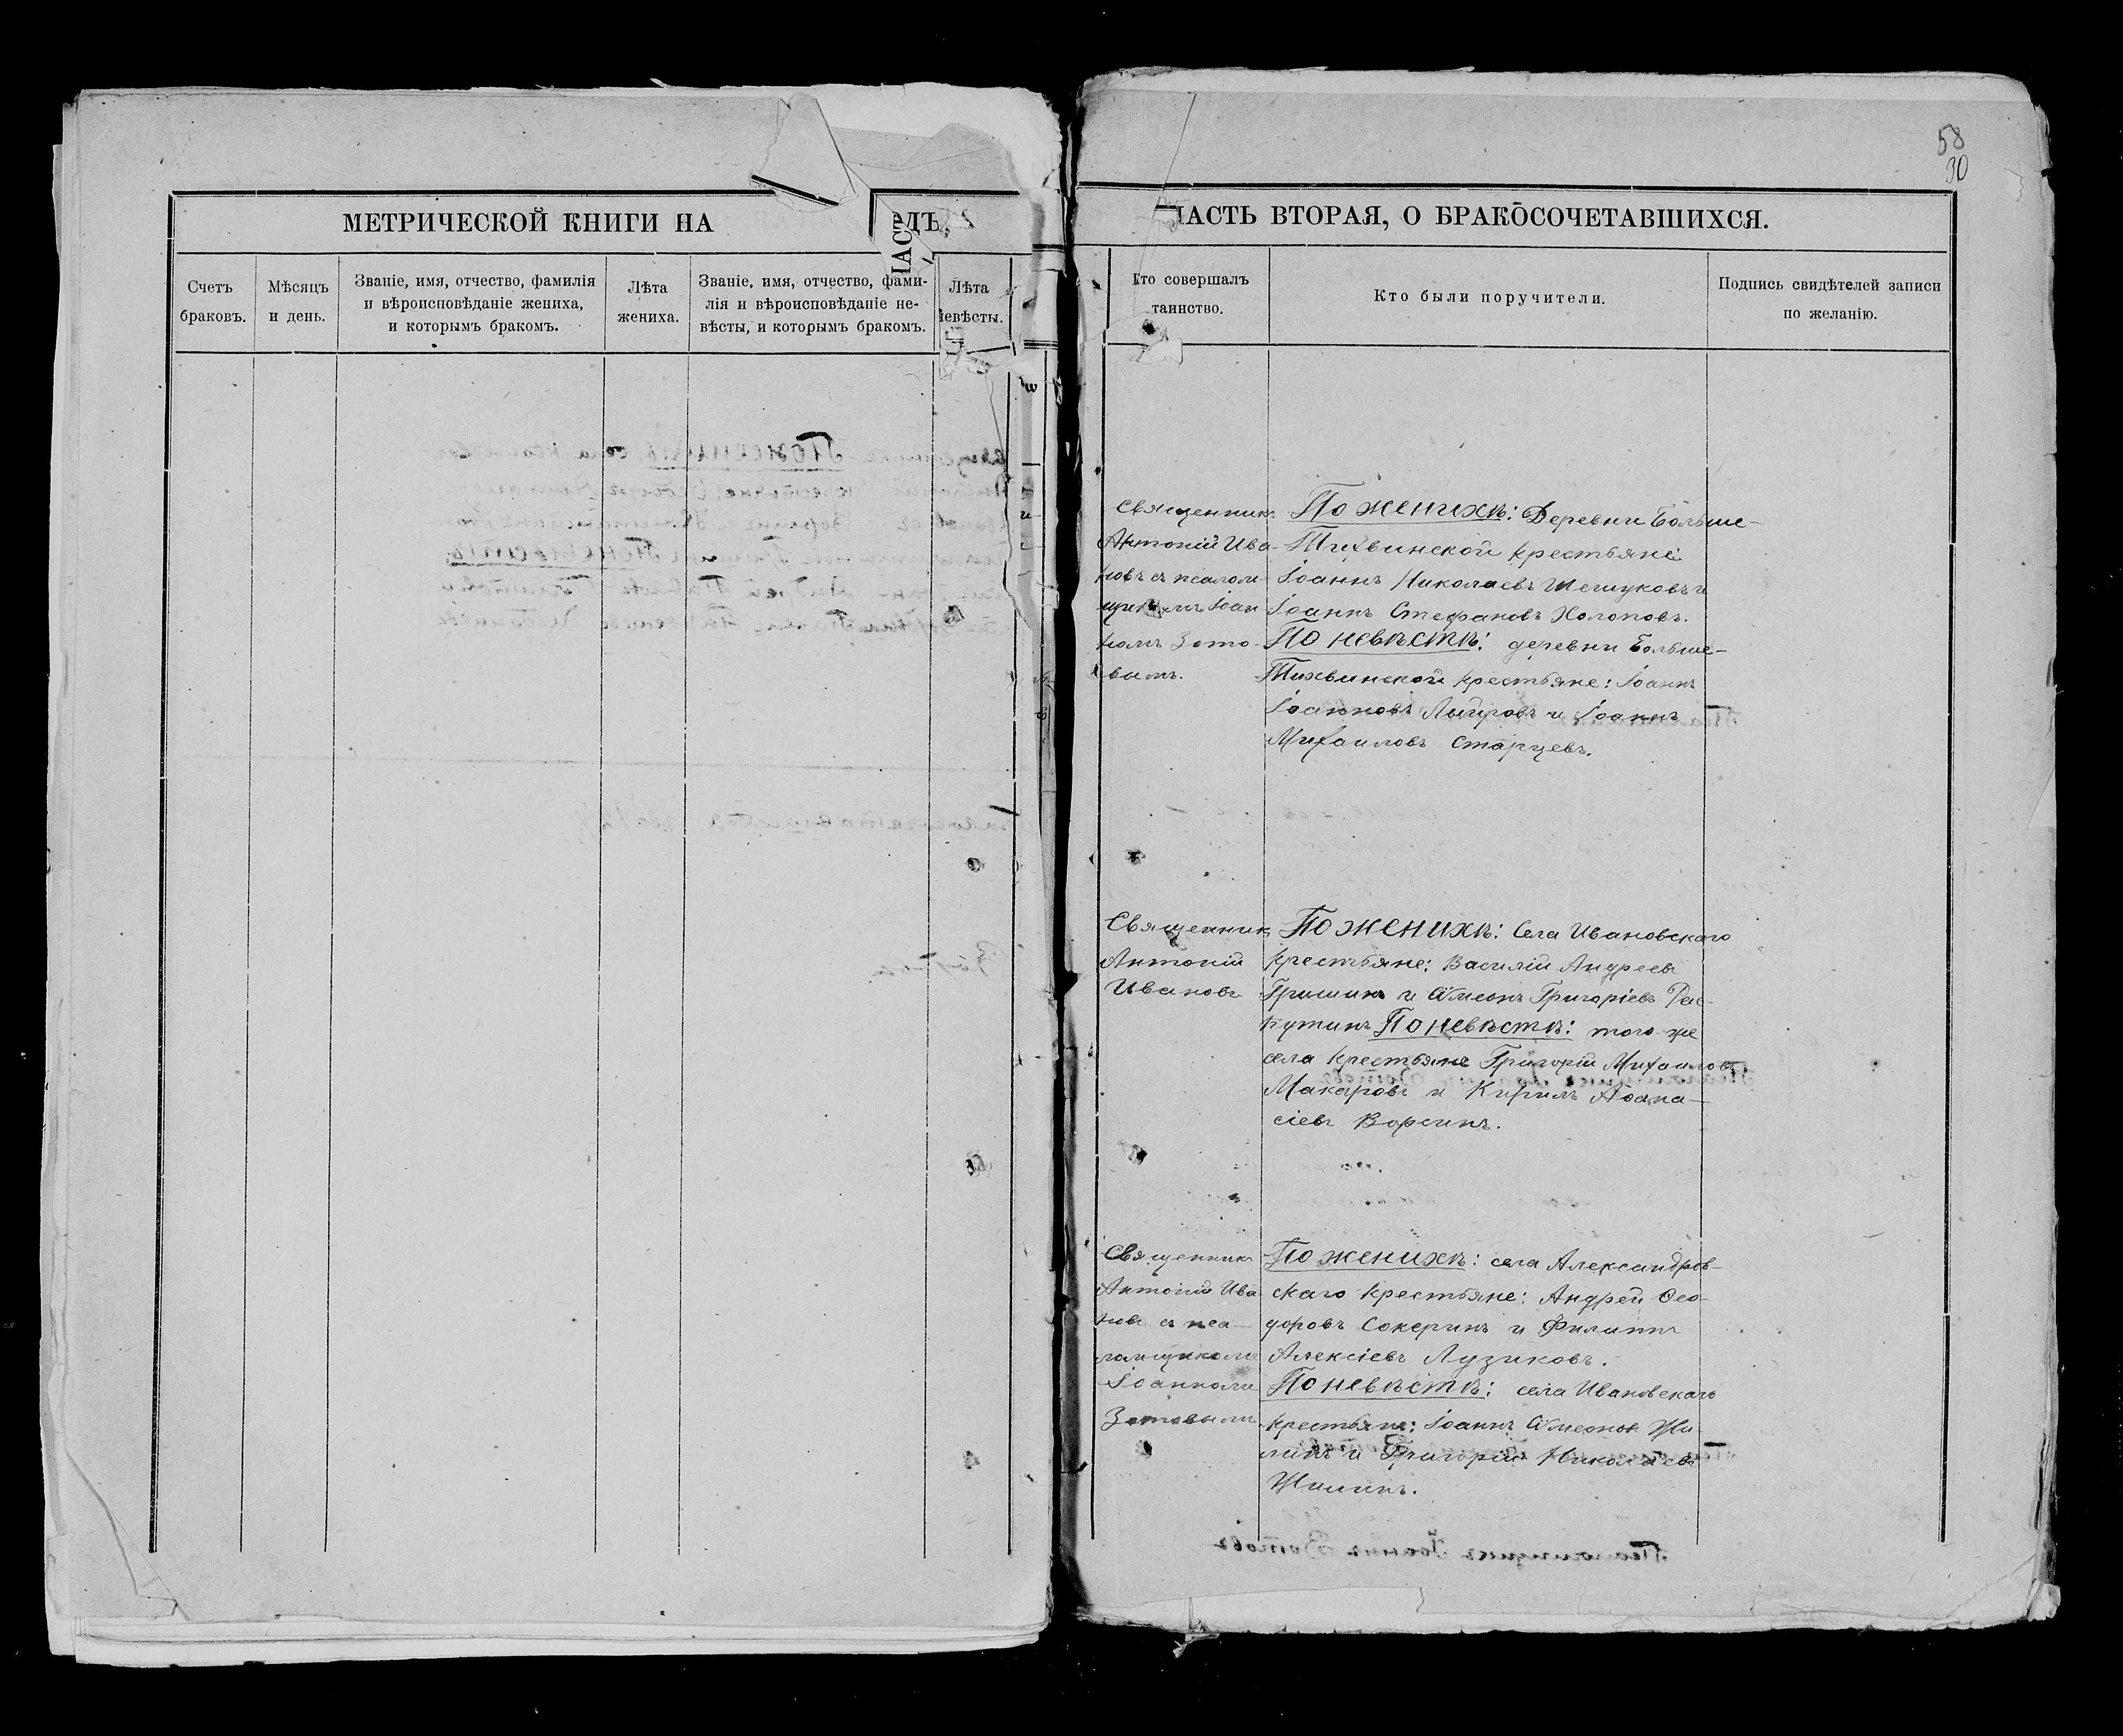 58
30
МЕТРИЧЕСКОЙ КНИГИ НА ДЪ,
Счетъ браковъ.
Мѣсяцъ и день.
Званіе, имя, отчество, фамилія
и вѣроисповѣданіе жениха,
и которымъ бракомъ.
Лѣта жениха.
Званіе, имя, отчество, фами-
лія и вѣроисповѣданіе не-
вѣсты, и которымъ бракомъ.
Лѣта
невѣсты.
ЧАСТЬ ВТОРАЯ, О БРАКОСОЧЕТАВШИХСЯ.
Кто совершалъ
таинство.
Кто были поручители.
Подпись свидѣтелей записи
по желанію.
Священникъ
Антоній Ива-
новъ съ псалом-
щикомъ Іоан
номъ Зото-
вымъ.
По женихѣ: Деревни Больше-
Тихвинской крестьяне:
Іоаннъ Николаевъ и
Іоаннъ Стефановъ Холоповъ.
По невѣстѣ: деревни Больше-
Тихвинской крестьяне: Іоаннъ
Іоанновъ и Іоаннъ
Михаиловъ Старцевъ.
Священникъ
Антоній
Ивановъ
По женихѣ: Села Ивановскаго
крестьяне: Василій Андреевъ
Гришинъ и Сѵмеонъ Григоріевъ Рас-
путинъ По невѣстѣ: того же
села крестьяне Григорій Михаиловъ
Макаровъ и Кирилъ Аѳана-
сіевъ Ворсинъ.
Священникъ
Антоній Ива
новъ съ пса-
ломщикомъ
Іоанномъ
Зотовымъ
По женихѣ: села Александров-
скаго крестьяне: Андрей Ѳео-
доровъ Сокеринъ и Филиппъ
Алексіевъ Лузиковъ.
По невѣстѣ: села Ивановскаго
крестьяне: Іоаннъ Сѵмеоновъ Жи-
линъ и Григорій Николаевъ
Жилинъ.